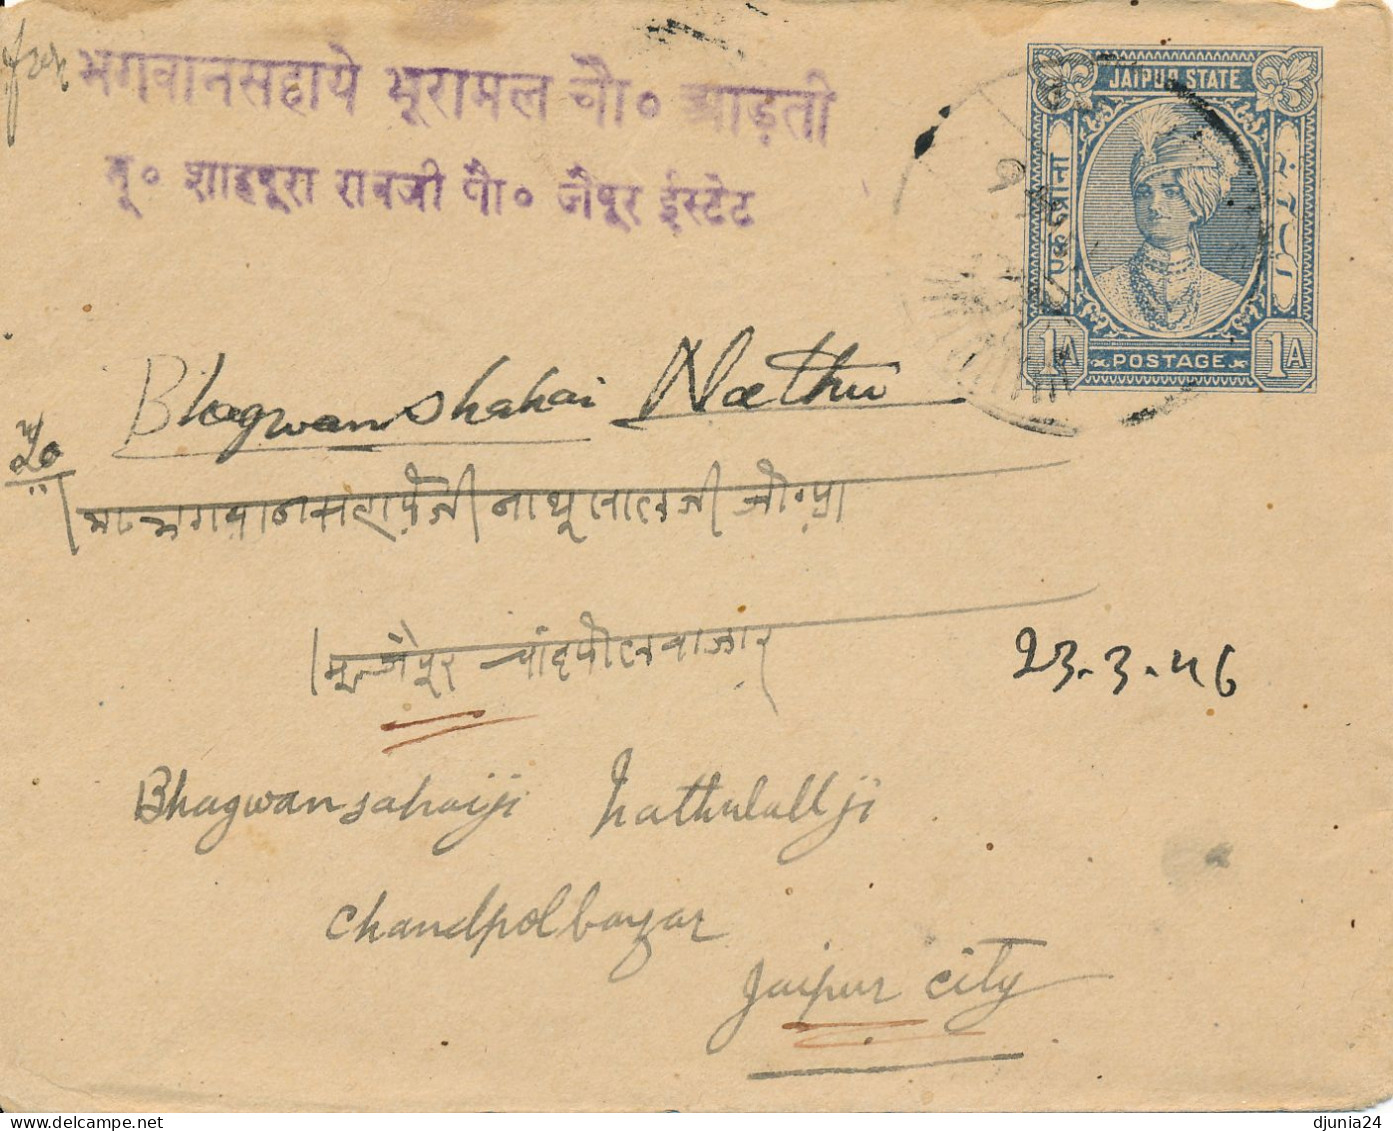 from
भगवानसहाये भूरामल चौ० आड़ती
मू० शाहपूरा रावजी पो० जैपूर ईस्टेट
JAIPUR STATE
एक आना
1A
POSTAGE
1A
Bhagwanshahai Nathu
To
भगवानसहायेजी नाथूलालजी
जैपूर चांदपोल बाजार
23.3.46
Bhagwansahaiji Nathulallji
Chandpolbazar
Jaipur City
djunia24